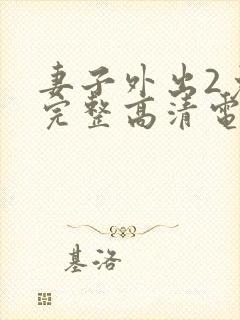 妻子外出2
完整高清電
基洛